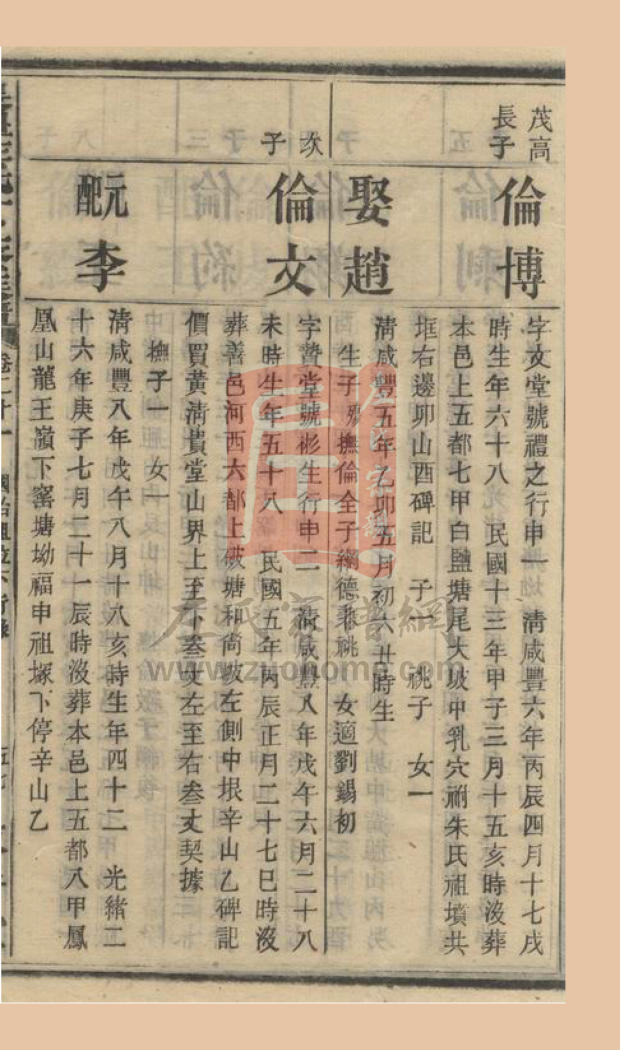 茂高
長子
倫博
字文堂號禮之行申一 清咸豐六年丙辰四月十七戌
時生年六十八 民國十三年甲子三月十五亥時沒葬
本邑上五都七甲白鹽塘尾大坡中乳穴祔朱氏祖墳共
右邊卯山酉碑記 子一 祧子 女一
娶趙
清咸豐五年乙卯五月初六丑時生
生子 撫倫全子綱德兼祧 女適劉錫初
次子
倫文
字贊堂號彬生行申二 清咸豐八年戊午六月二十八
未時生年五十八 民國五年丙辰正月二十七巳時沒
葬善邑河西六都上破塘和尚坡左側中垠辛山乙碑記
價買黃清貴堂山界上至下叁丈左至右叁丈契據
撫子一 女一
元配李
清咸豐八年戊午八月十八亥時生年四十二 光緒二
十六年庚子七月二十一辰時沒葬本邑上五都八甲鳳
凰山龍王嶺下窰塘坳福申祖塚下停辛山乙
卷二十一
左氏家譜網
www.zuojiapu.com